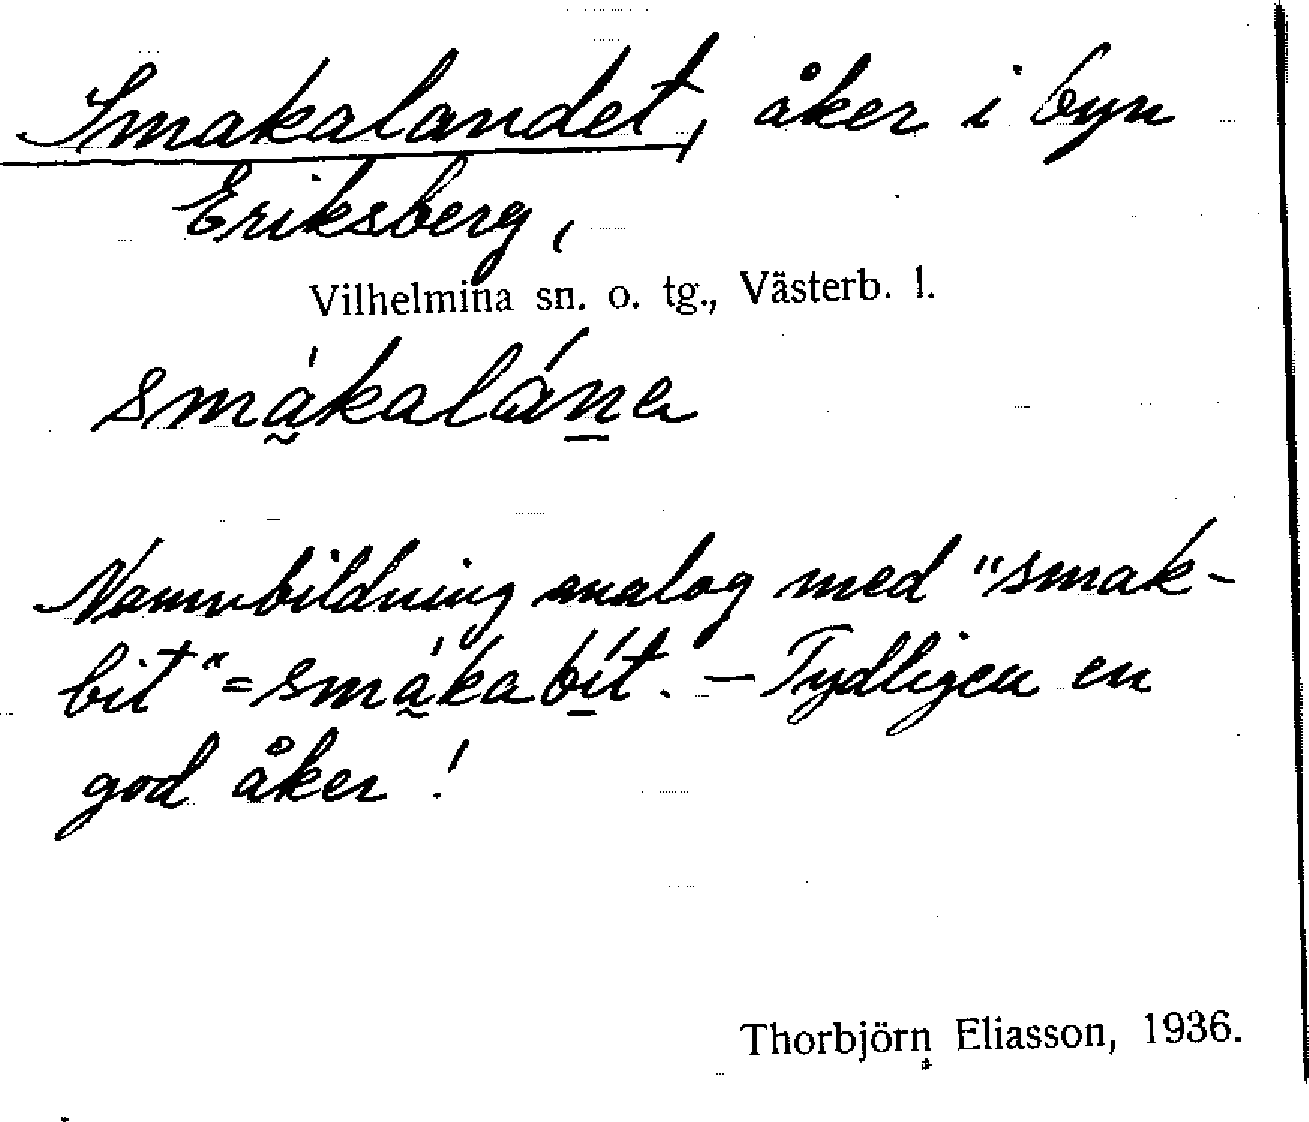 Smakalandet, åker i byn
Eriksberg,
Vilhelmina sn. o. tg., Västerb. l.
smá̰kalána̱
Namnbildning analog med "smak-
bit" = smá̰kabí̱t. – Tydligen en
god åker!
Thorbjörn Eliasson, 1936.